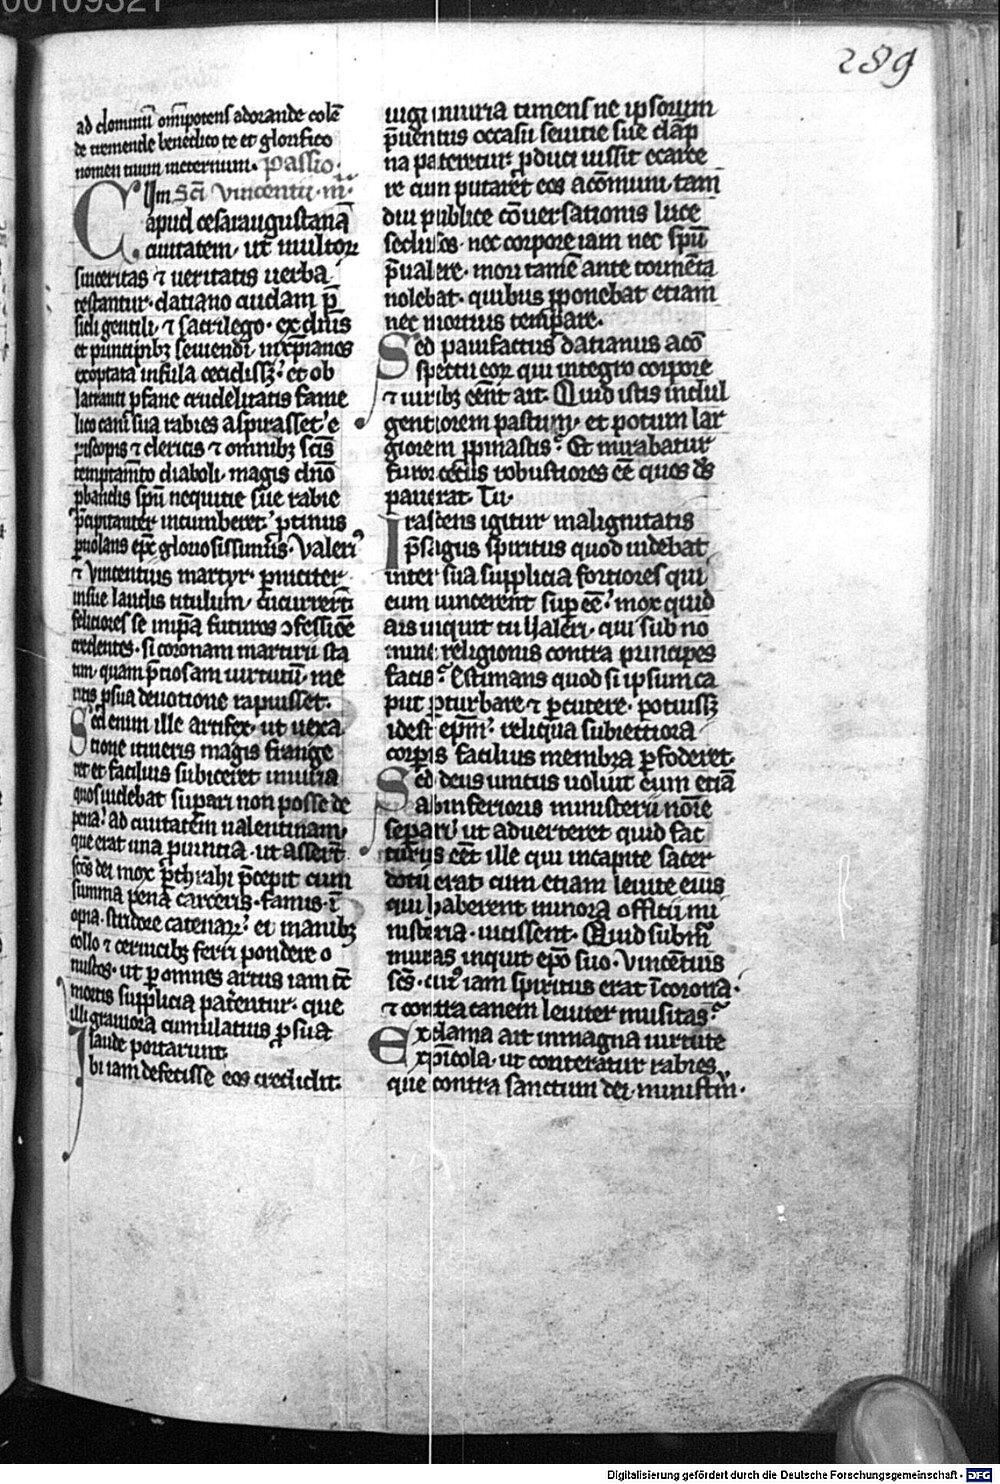 00109321
289
ad dominū om̄ipotens adorande colē
de tremende benedico te et glorifico
nomen tuum ineternum. Passio.
Cūm Sc̄i vincentii. m̄.
apud cesaraugustanā
ciuitatem. ut multor
sinceritas ⁊ ueritatis uerba
testantur. datiano cuidam p̄
sidi gentili. ⁊ sacrilego. ex dn̄is
et principibꝫ seuiendi in xp̄ianos
exoptata infula cecidissꝫ. et ob
latranti ꝓfane crudelitatis fame
lico cani sua rabies aspirasset. e
piscopis ⁊ clericis ⁊ omnibꝫ sc̄is
temptam̄to diaboli. magis dn̄o
ꝓbandis sp̄u nequitie sue rabie
p̄cipitanter incumberet. ꝓtinus
ꝓuolans ep̄c gloriosissimus. Valeri
⁊ Vincentius martyr. ꝑniciter
insue laudis titulum. cucurrert̄
feliciores se in ip̄a futuros ꝯfessiōe
credentes. si coronam martirii sta
tim. quam p̄tiosam uirtutū. me
ritis ꝓsua deuotione rapuisset.
Sed enim ille artifex. ut uexa
tione itineris magis frange
ret et facilius subiceret iniuria
quos uidebat supari non posse de
pena. ad ciuitatem ualentinam.
que erat una ꝓuincia. ut asserit̄
sc̄os dei mox ꝑthrahi p̄cepit cum
summa pena carceris. famis. ī
opia. stridore catenarꝝ. et manibꝫ
collo ⁊ ceruicibꝫ ferri pondere o
nustos. ut ꝑ omnes artus iam tc̄
mortis supplicia pat̄entur. que
illi grauiora cumulatius ꝓ sua
laude portarunt.
Ibi iam defecisse eos credidit.
iugi iniuria timens ne ipsorum
p̄uentus occasu seuitie sue dāp
na pateretur. ꝓduci iussit ecarce
re cum putaret̄ eos acōmuni tam
diu publice cōuersationis luce
seclusos. nec corpore iam nec sp̄u
p̄ualere. mori tamē ante tormēta
nolebat. quibus ꝓponebat etiam
nec mortuis temꝑare.
Sed pauifactus datianus acō
spectu eoꝝ qui integro corpore
⁊ uiribꝫ eēnt ait. Quid istis indul
gentiorem pastum. et potum lar
giorem ꝓpinastis. Et mirabatur
furor cecus robustiores eē quos ds̄
pauerat. Tu.
Irascens igitur malignitatis
p̄sagus spiritus quod uidebat
inter sua supplicia fortiores qui
eum uincerent sup eē. mox quid
ais inquit tu ualeri. qui sub no
mine religionis contra principes
facis. Estimans quod si ipsum ca
put ꝓturbare ⁊ ꝑcutere. potuissꝫ
idest ep̄m. reliqua subiectiora
corꝑis facilius membra ꝑfoderet.
Sed deus unitus uoluit eum etiā
ab inferioris ministerii nōīe
separari ut aduerteret quid fac
turus eēt ille qui incapite sacer
dotii erat cum etiam leuite eius
qui haberent minora offitii mi
nisteria. uicissent. Quid subm̄
muras inquit ep̄o suo. Vincētuis
sc̄s. cui iam spiritus erat ī corona.
⁊ contra canem leuiter musitas.
Exclama ait inmagna uirtute
xp̄icola. ut conteratur rabies
que contra sanctum dei. ministrū.
Digitalisierung gefördert durch die Deutsche Forschungsgemeinschaft - DFG